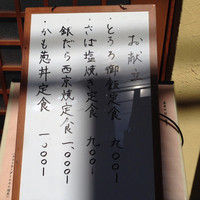 お献立
・とろろ御飯定食 九〇〇ー
・さば塩焼き定食 九〇〇ー
銀だら西京焼定食 一、〇〇〇ー
・かも葱丼定食 一〇〇〇ー